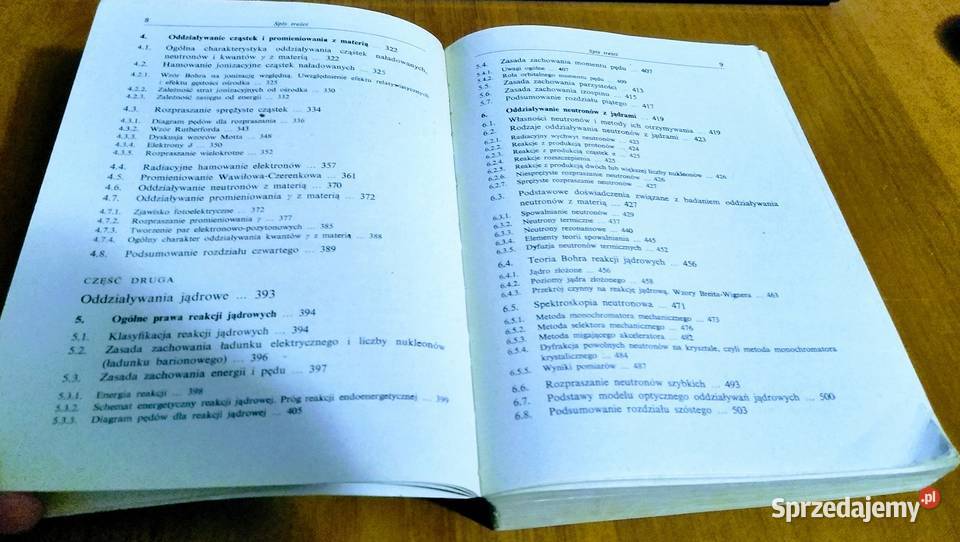 8
Spis treści
4. Oddziaływanie cząstek i promieniowania z materią ... 322
4.1. Ogólna charakterystyka oddziaływania cząstek naładowanych,
neutronów i kwantów γ z materią ... 322
4.2. Hamowanie jonizacyjne cząstek naładowanych ... 325
4.2.1. Wzór Bohra na jonizację względną. Uwzględnienie efektu relatywistycznego
i efektu gęstości ośrodka ... 325
4.2.2. Zależność strat jonizacyjnych od ośrodka ... 330
4.2.3. Zależność zasięgu od energii ... 332
4.3. Rozpraszanie sprężyste cząstek ... 334
4.3.1. Diagram pędów dla rozpraszania ... 336
4.3.2. Wzór Rutherforda ... 343
4.3.3. Dyskusja wzorów Motta ... 348
4.3.4. Elektrony δ ... 350
4.3.5. Rozpraszanie wielokrotne ... 352
4.4. Radiacyjne hamowanie elektronów ... 357
4.5. Promieniowanie Wawiłowa-Czerenkowa ... 361
4.6. Oddziaływanie neutronów z materią ... 370
4.7. Oddziaływanie promieniowania γ z materią ... 372
4.7.1. Zjawisko fotoelektryczne ... 372
4.7.2. Rozpraszanie promieniowania γ ... 377
4.7.3. Tworzenie par elektronowo-pozytonowych ... 385
4.7.4. Ogólny charakter oddziaływania kwantów γ z materią ... 388
4.8. Podsumowanie rozdziału czwartego ... 389
CZĘŚĆ DRUGA
Oddziaływania jądrowe ... 393
5. Ogólne prawa reakcji jądrowych ... 394
5.1. Klasyfikacja reakcji jądrowych ... 394
5.2. Zasada zachowania ładunku elektrycznego i liczby nukleonów
(ładunku barionowego) ... 396
5.3. Zasada zachowania energii i pędu ... 397
5.3.1. Energia reakcji ... 398
5.3.2. Schemat energetyczny reakcji jądrowej. Próg reakcji endoenergetycznej ... 399
5.3.3. Diagram pędów dla reakcji jądrowej ... 405
Spis treści
9
5.4. Zasada zachowania momentu pędu ... 407
5.4.1. Uwagi ogólne ... 407
5.4.2. Rola orbitalnego momentu pędu ... 409
5.5. Zasada zachowania parzystości ... 413
5.6. Zasada zachowania izospinu ... 415
5.7. Podsumowanie rozdziału piątego ... 417
6. Oddziaływanie neutronów z jądrami ... 419
6.1. Własności neutronów i metody ich otrzymywania ... 419
6.2. Rodzaje oddziaływania neutronów z jądrami ... 423
6.2.1. Radiacyjny wychwyt neutronów ... 423
6.2.2. Reakcje z produkcją protonów ... 424
6.2.3. Reakcje z produkcją cząstek α ... 425
6.2.4. Reakcje rozszczepienia ... 425
6.2.5. Reakcje z produkcją dwóch lub większej liczby nukleonów ... 426
6.2.6. Niesprężyste rozpraszanie neutronów ... 426
6.2.7. Sprężyste rozpraszanie neutronów ... 427
6.3. Podstawowe doświadczenia związane z badaniem oddziaływania
neutronów z materią ... 427
6.3.1. Spowalnianie neutronów ... 429
6.3.2. Neutrony termiczne ... 437
6.3.3. Neutrony rezonansowe ... 440
6.3.4. Elementy teorii spowalniania ... 445
6.3.5. Dyfuzja neutronów termicznych ... 452
6.4. Teoria Bohra reakcji jądrowych ... 456
6.4.1. Jądro złożone ... 456
6.4.2. Poziomy jądra złożonego ... 458
6.4.3. Przekrój czynny na reakcję jądrową. Wzory Breita-Wignera ... 463
6.5. Spektroskopia neutronowa ... 471
6.5.1. Metoda monochromatora mechanicznego ... 473
6.5.2. Metoda selektora mechanicznego ... 476
6.5.3. Metoda migającego akceleratora ... 482
6.5.4. Dyfrakcja powolnych neutronów na krysztale, czyli metoda monochromatora
krystalicznego ... 484
6.5.5. Wyniki pomiarów ... 487
6.6. Rozpraszanie neutronów szybkich ... 493
6.7. Podstawy modelu optycznego oddziaływań jądrowych ... 500
6.8. Podsumowanie rozdziału szóstego ... 503
Sprzedajemy.pl